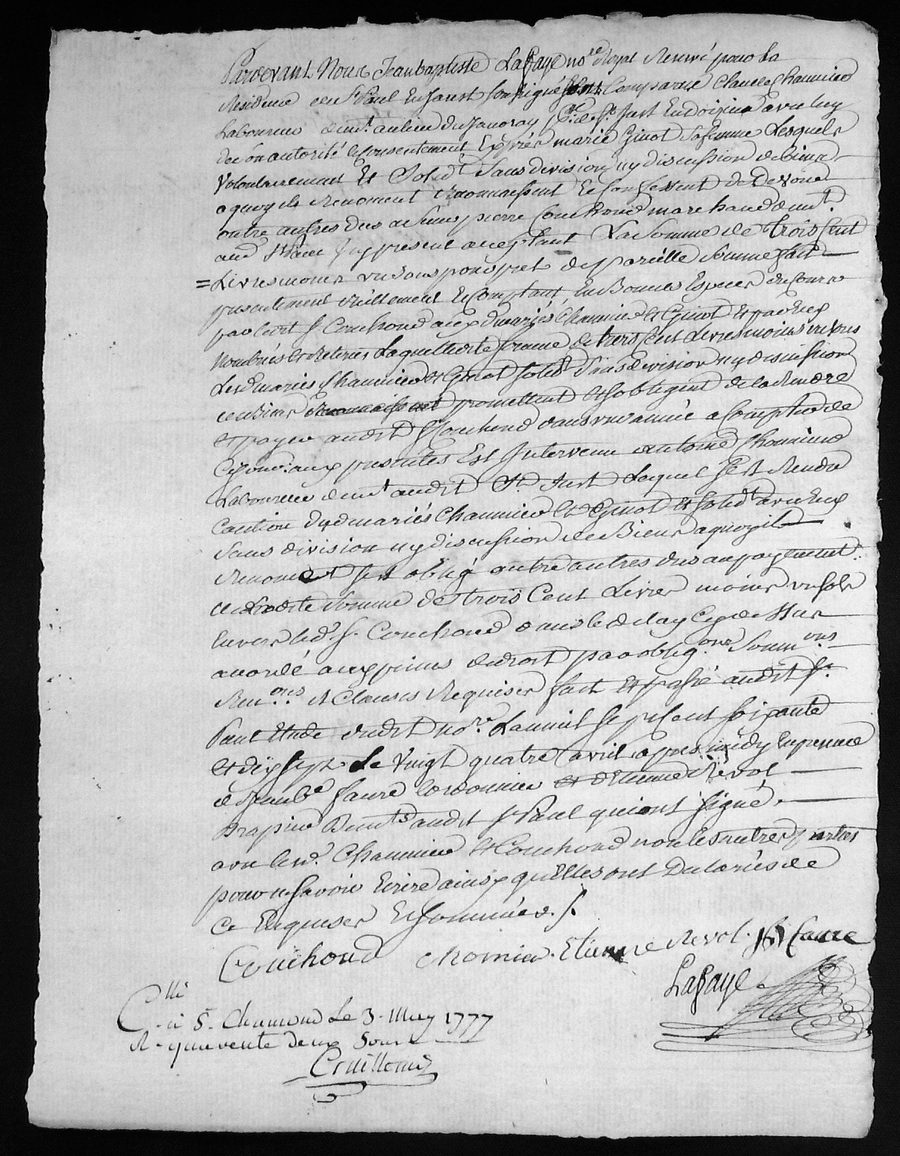 Pardevant Nous Jean baptiste Lafaye no.re Royal Reservé pour la
Residence de St Paul En Jarest soussigné Comparant Claude Chaumier
Laboureur dem.t au lieu du p.sse de St. Just En doizieu avec luy
de son autorité & consentement Exprès marie Ginot sa femme Lesquels
Volontairement Et Solid.t Sans division ny discussion de biens
a quoy ils Renoncent Reconnoissent & confessent de Devoir
outre autres dus a Sieur pierre Couchoud marchand dem.t
aud. St Paul Icy present acceptant La Somme de trois Cent
= Livres moins un sous pour pret de pareille Somme fait
presentement Réellement & Comptant En Bonnes Especes du Cours
par led.t S.r Couchoud auxd. mariés Chaumier & Ginot Et par Eux
Nombrés & Retirés Laquelle ditte somme de trois Cent Livres moins un sous
Lesd. mariés Chaumier & Ginot solid.t sans division ny discussion
de Biens promettent & sobligent de la Rendre
et payer audit S.r Couchoud dans une année a Compter de
Ce jour, aux presentes Est Intervenu antoine Chaumier
Laboureur dem.t audit St. Just Lequel s'est Rendu
Caution desd. mariés Chaumier Et Ginot & solid.t avec Eux
sans division ny discussion de Biens a quoy il
Renonce s'est obligé outre autres dus au payement
de Ladite Somme de trois Cent Livres moins un sols
Envers led. S.r Couchoud dans le delay Cy dessus
accordé aux peines de droit par oblig.ons Soum.ons
Ren.ons & Clauses Requises fait & passé audit St
Paul Etude dudit no.re Lan mil sept cent soixante
et dix sept Le Vingt quatre avril apres midy En presence
de Jean b.te faure Cordonnier et d'Etienne Revol
Drapier Dem.ts audit St Paul qui ont signé
avec lesd. Chaumier & Couchoud non les autres parties
pour ne savoir Ecrire ainsy quelles ont Déclarés de
Ce Enquises & sommées ./.
Couchoud Chomier Etienne Revol JB faure
Lafaye
C.llé
à S.t Chamond Le 3. May 1777
R. quarente deux Sous